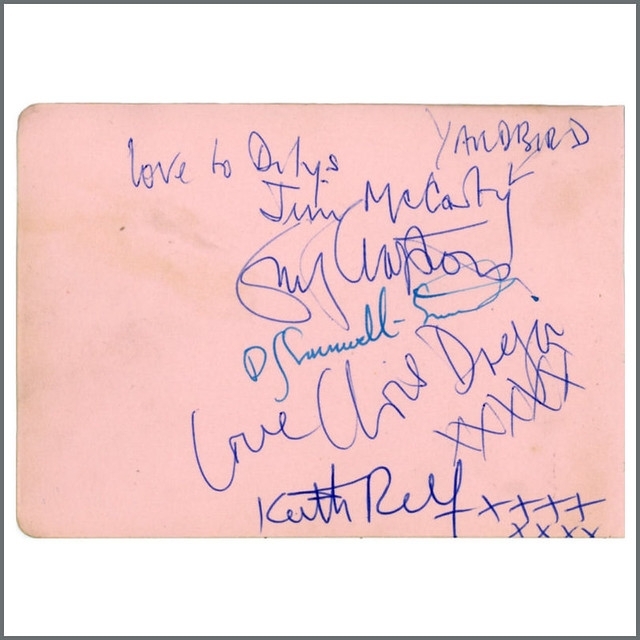 YARDBIRD
Love to Dilys
Jim McCarty
Eric Clapton
P Samwell-Smith
Love Chris Dreja
XXXXX
Keith Relf ++++
xxxx